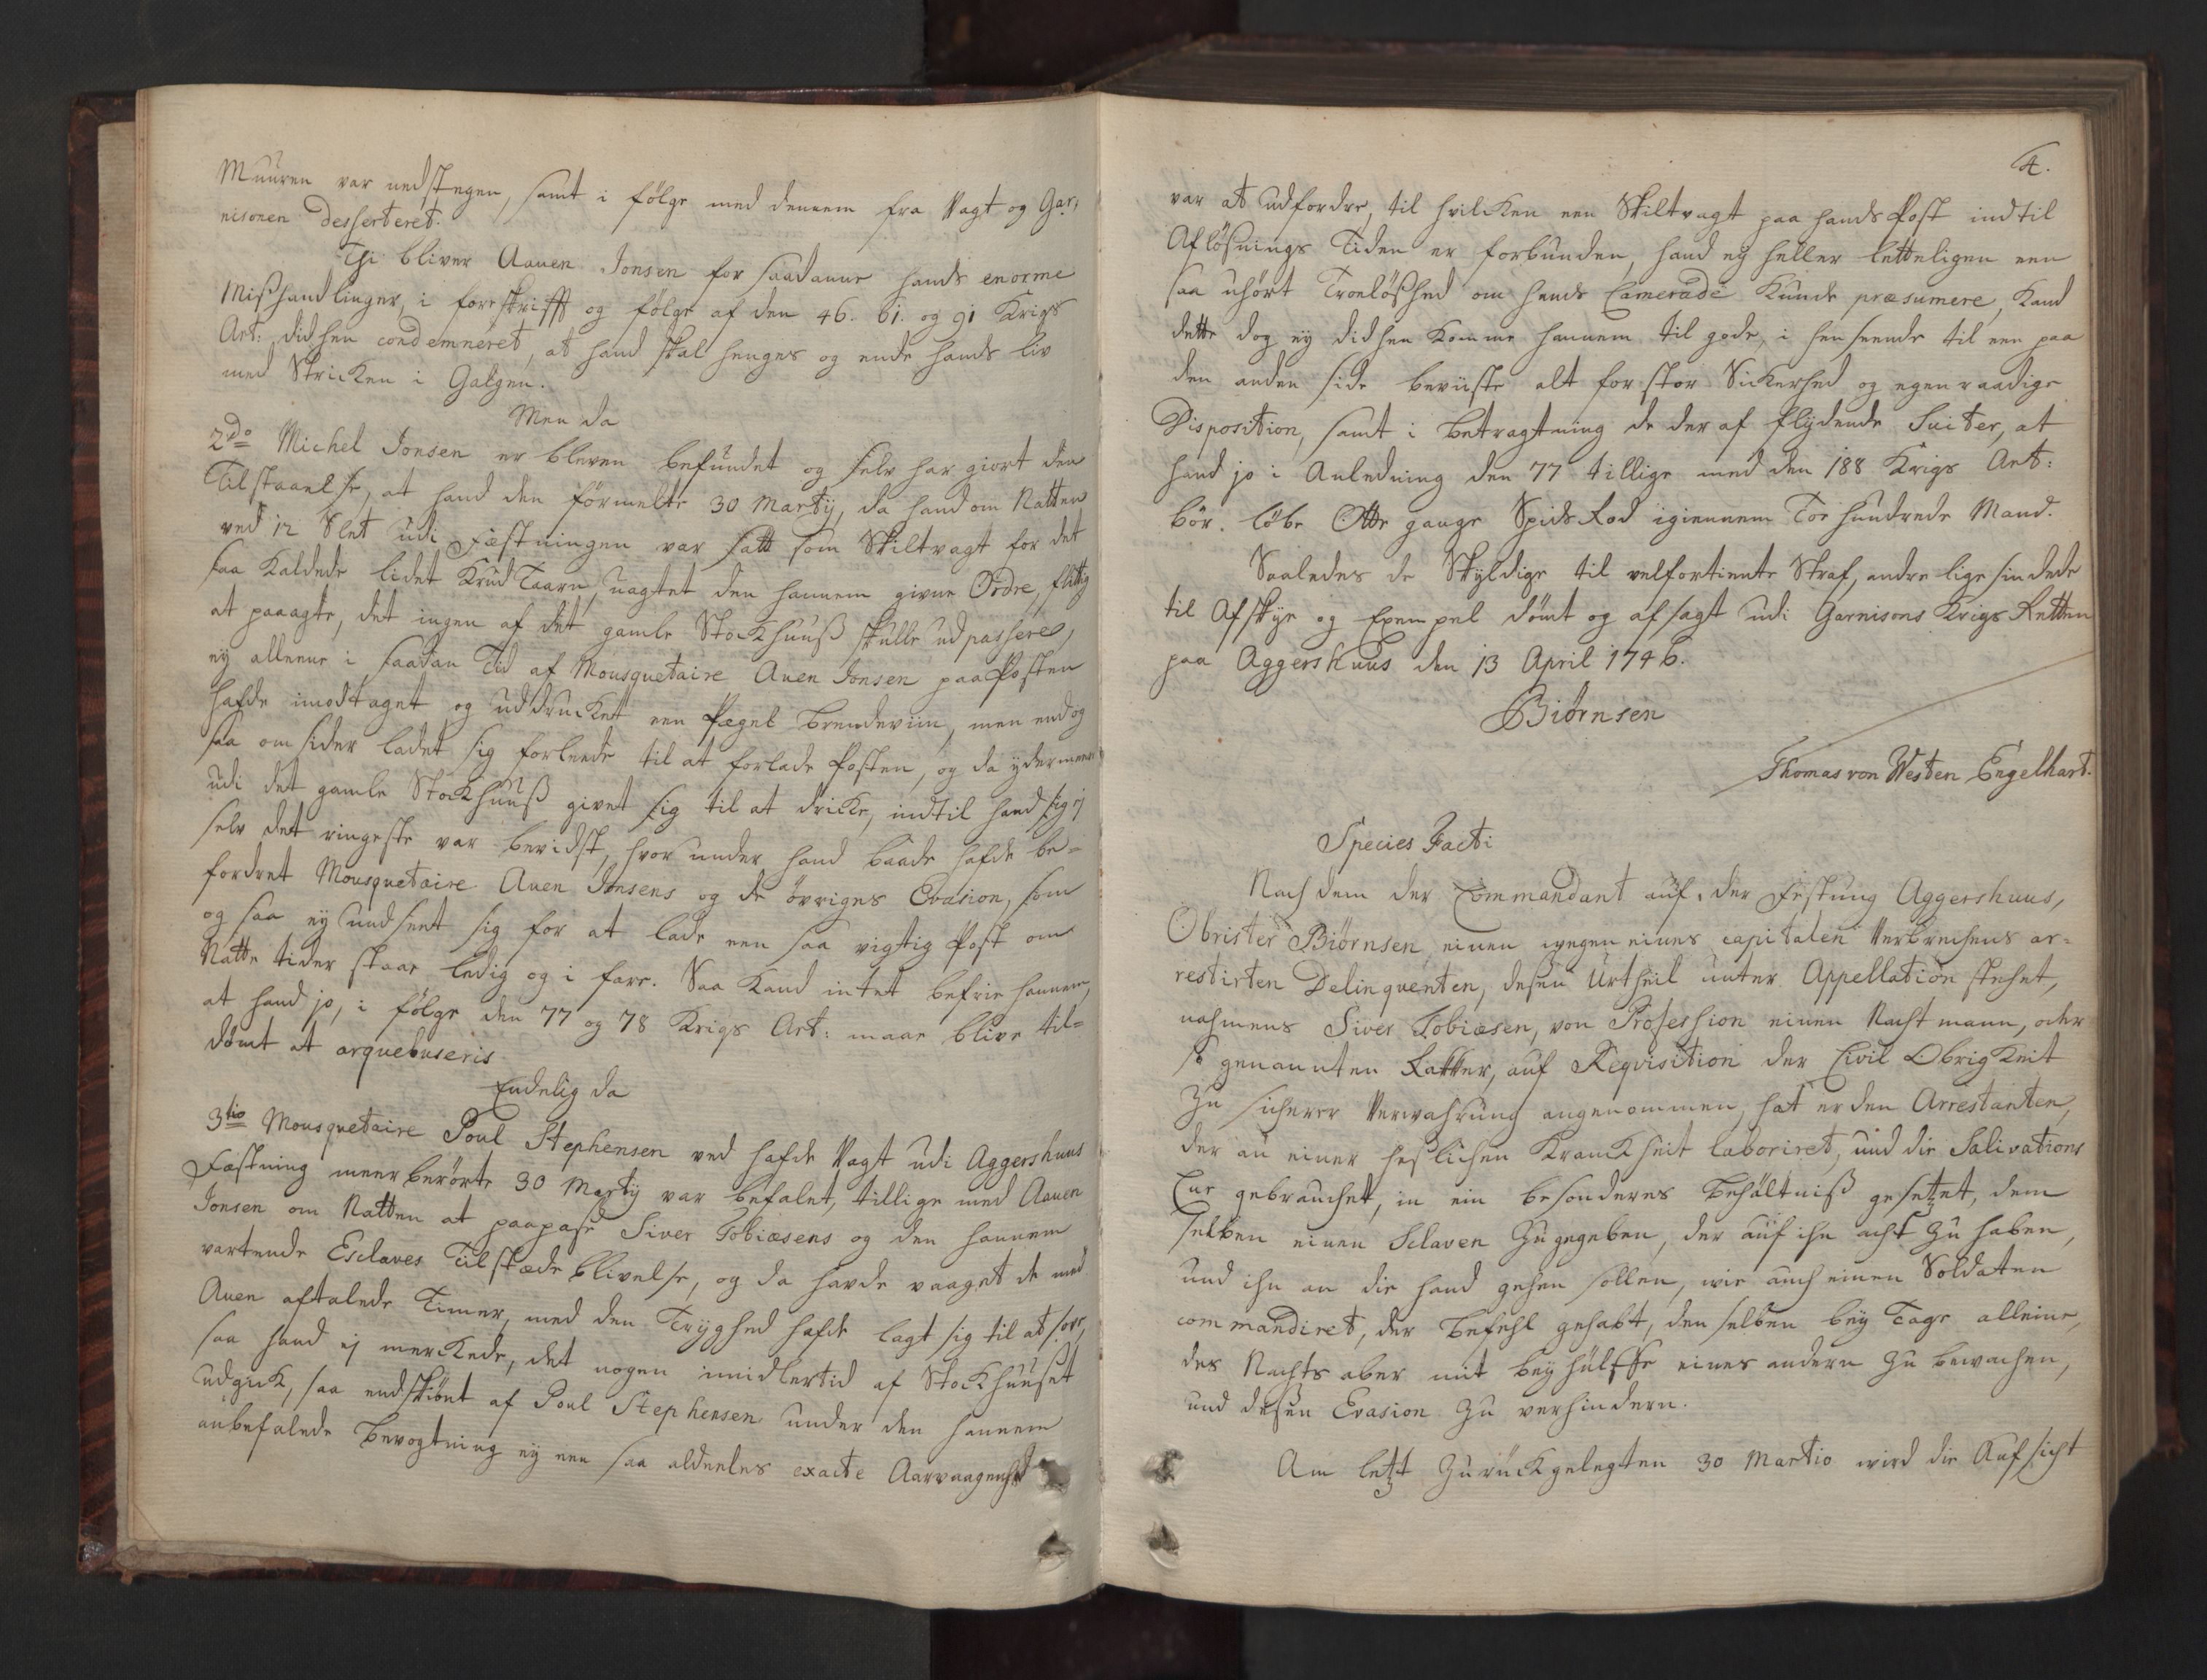 Muuren var nedstegen, samt i fölge med dennem fra Vagt og Gar-
nisonen desserteret.
Thi bliver Aauen Jonsen for saadanne hands enorme
Misshandlinger, i foreskrifft og fölge af den 46. 61. og 91 Krigs
Art: didhen condemneret, at hand skal henges og ende hands liv
med Stricken i Galgen.
Men da
2do Michel Jonsen er bleven befundet og selv har giort den
Tilstaaelse, at hand den förmelte 30 Martij, da hand om Natten
ved 12 Slet udi Fæstningen var satt som Skiltvagt for det
saa kaldede lidet Krud Taarn, uagtet den hannem givne Ordre, flittig
at paaagte, det ingen af det gamle Stockhuuß skulle udpassere,
ey alleene i saadan Tid af Mousquetaire Auen Jonsen paa Posten
hafde imodtaget og uddrucket een Pægel Brendeviin, men endog
saa omsider ladet sig forleede til at forlade Posten, og da ydermeere
udi det gamle Stockhuuß givet sig til at dricke, indtil hand sig ej
selv det ringeste var bevidst, hvor under hand baade hafde be-
fordret Mousquetaire Auen Jonsens og de övriges Evasion, som
og saa ey undseet sig for at lade een saa vigtig Post om
Natte tider staae ledig og i fare. Saa kand intet befrie hannem,
at hand jo, i fölge den 77 og 78 Krigs Art: maae blive til-
dömt at arquebuseris
Endelig da
3tio Mousquetaire Poul Stephensen ved hafde Vagt udi Aggershuus
Fæstning meerberörte 30 Martij var befalet, tillige med Aauen
Jonsen om Natten at paapasse Siver Tobiæsens og den hannem
vartende Esclaves Tilstædeblivelse, og da havde vaaget de med
Auen aftalede Timer, med den Tryghed hafde lagt sig til at sove,
saa hand ej merckede, det nogen imidlertid af Stockhuuset
udgick, saa endskiönt af Poul Stephensen under den hannem
anbefalede Bevogtning ey een saa aldeeles exacte Aarvaagenhed
4.
var at udfordre, til hvilcken een Skiltvagt paa hands Post indtil
Aflößnings Tiden er forbunden, hand ey heller letteligen een
saa uhört Troelößhed om hands Camerade kunde præsumere, kand
dette dog ey didhen komme hannem til gode, i henseende til een paa
den anden side beviiste alt for stor Sickerhed og egenraadige
Disposition, samt i betragtning de der af flydende Suiter, at
hand jo i Anledning den 77 tillige med den 188 Krigs Art:
bör. löbe Otte gange Spids Rod igiennem Toe hundrede Mand.
Saaledes de Skyldige til velfortiente Straf, andre ligesindede
til Afskye og Exempel dömt og afsagt udi Garnisons Krigs Retten
paa Aggershuus den 13 April 1746.
Biørnsen
Thomas von Westen Engelhart.
Species Facti
Nach dem der Commandant auf der Festung Aggershuus,
Obrister Biørnsen, einen wegen eines capitalen Verbrechens ar-
restirten Delinquenten, deßen Urtheil unter Appellation stehet,
nahmens Siver Tobiæsen, von Profession einen Nachtmann, oder
so genannten Rakker, auf Reqvisition der Civil Obrigkeit
zu sicherer Verwahrung angenommen, hat er den Arrestanten,
der an einer heßlichen Kranckheit laboriret, und die Salivations
Cur gebrauchet, in ein besonderes Behältniß gesetzet, dem
selben einen Sclaven zugegeben, der auf ihn acht zu haben,
und ihn an die hand gehen sollen, wie auch einen Soldaten
commandiret, der Befehl gehabt, denselben bey Tage alleine,
des Nachts aber mit beyhülffe eines andern zu bewachen,
und deßen Evasion zu verhindern.
Am letzt zurückgelegten 30 Martio wird die Aufsicht